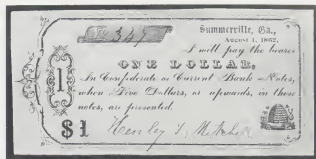 No 347
Summerville, Ga.,
August 1, 1862.
I will pay the bearer
ONE DOLLAR,
In Confederate or Current Bank Notes,
when Five Dollars, or upwards, in these
notes, are presented.
1
$1 Henley T.